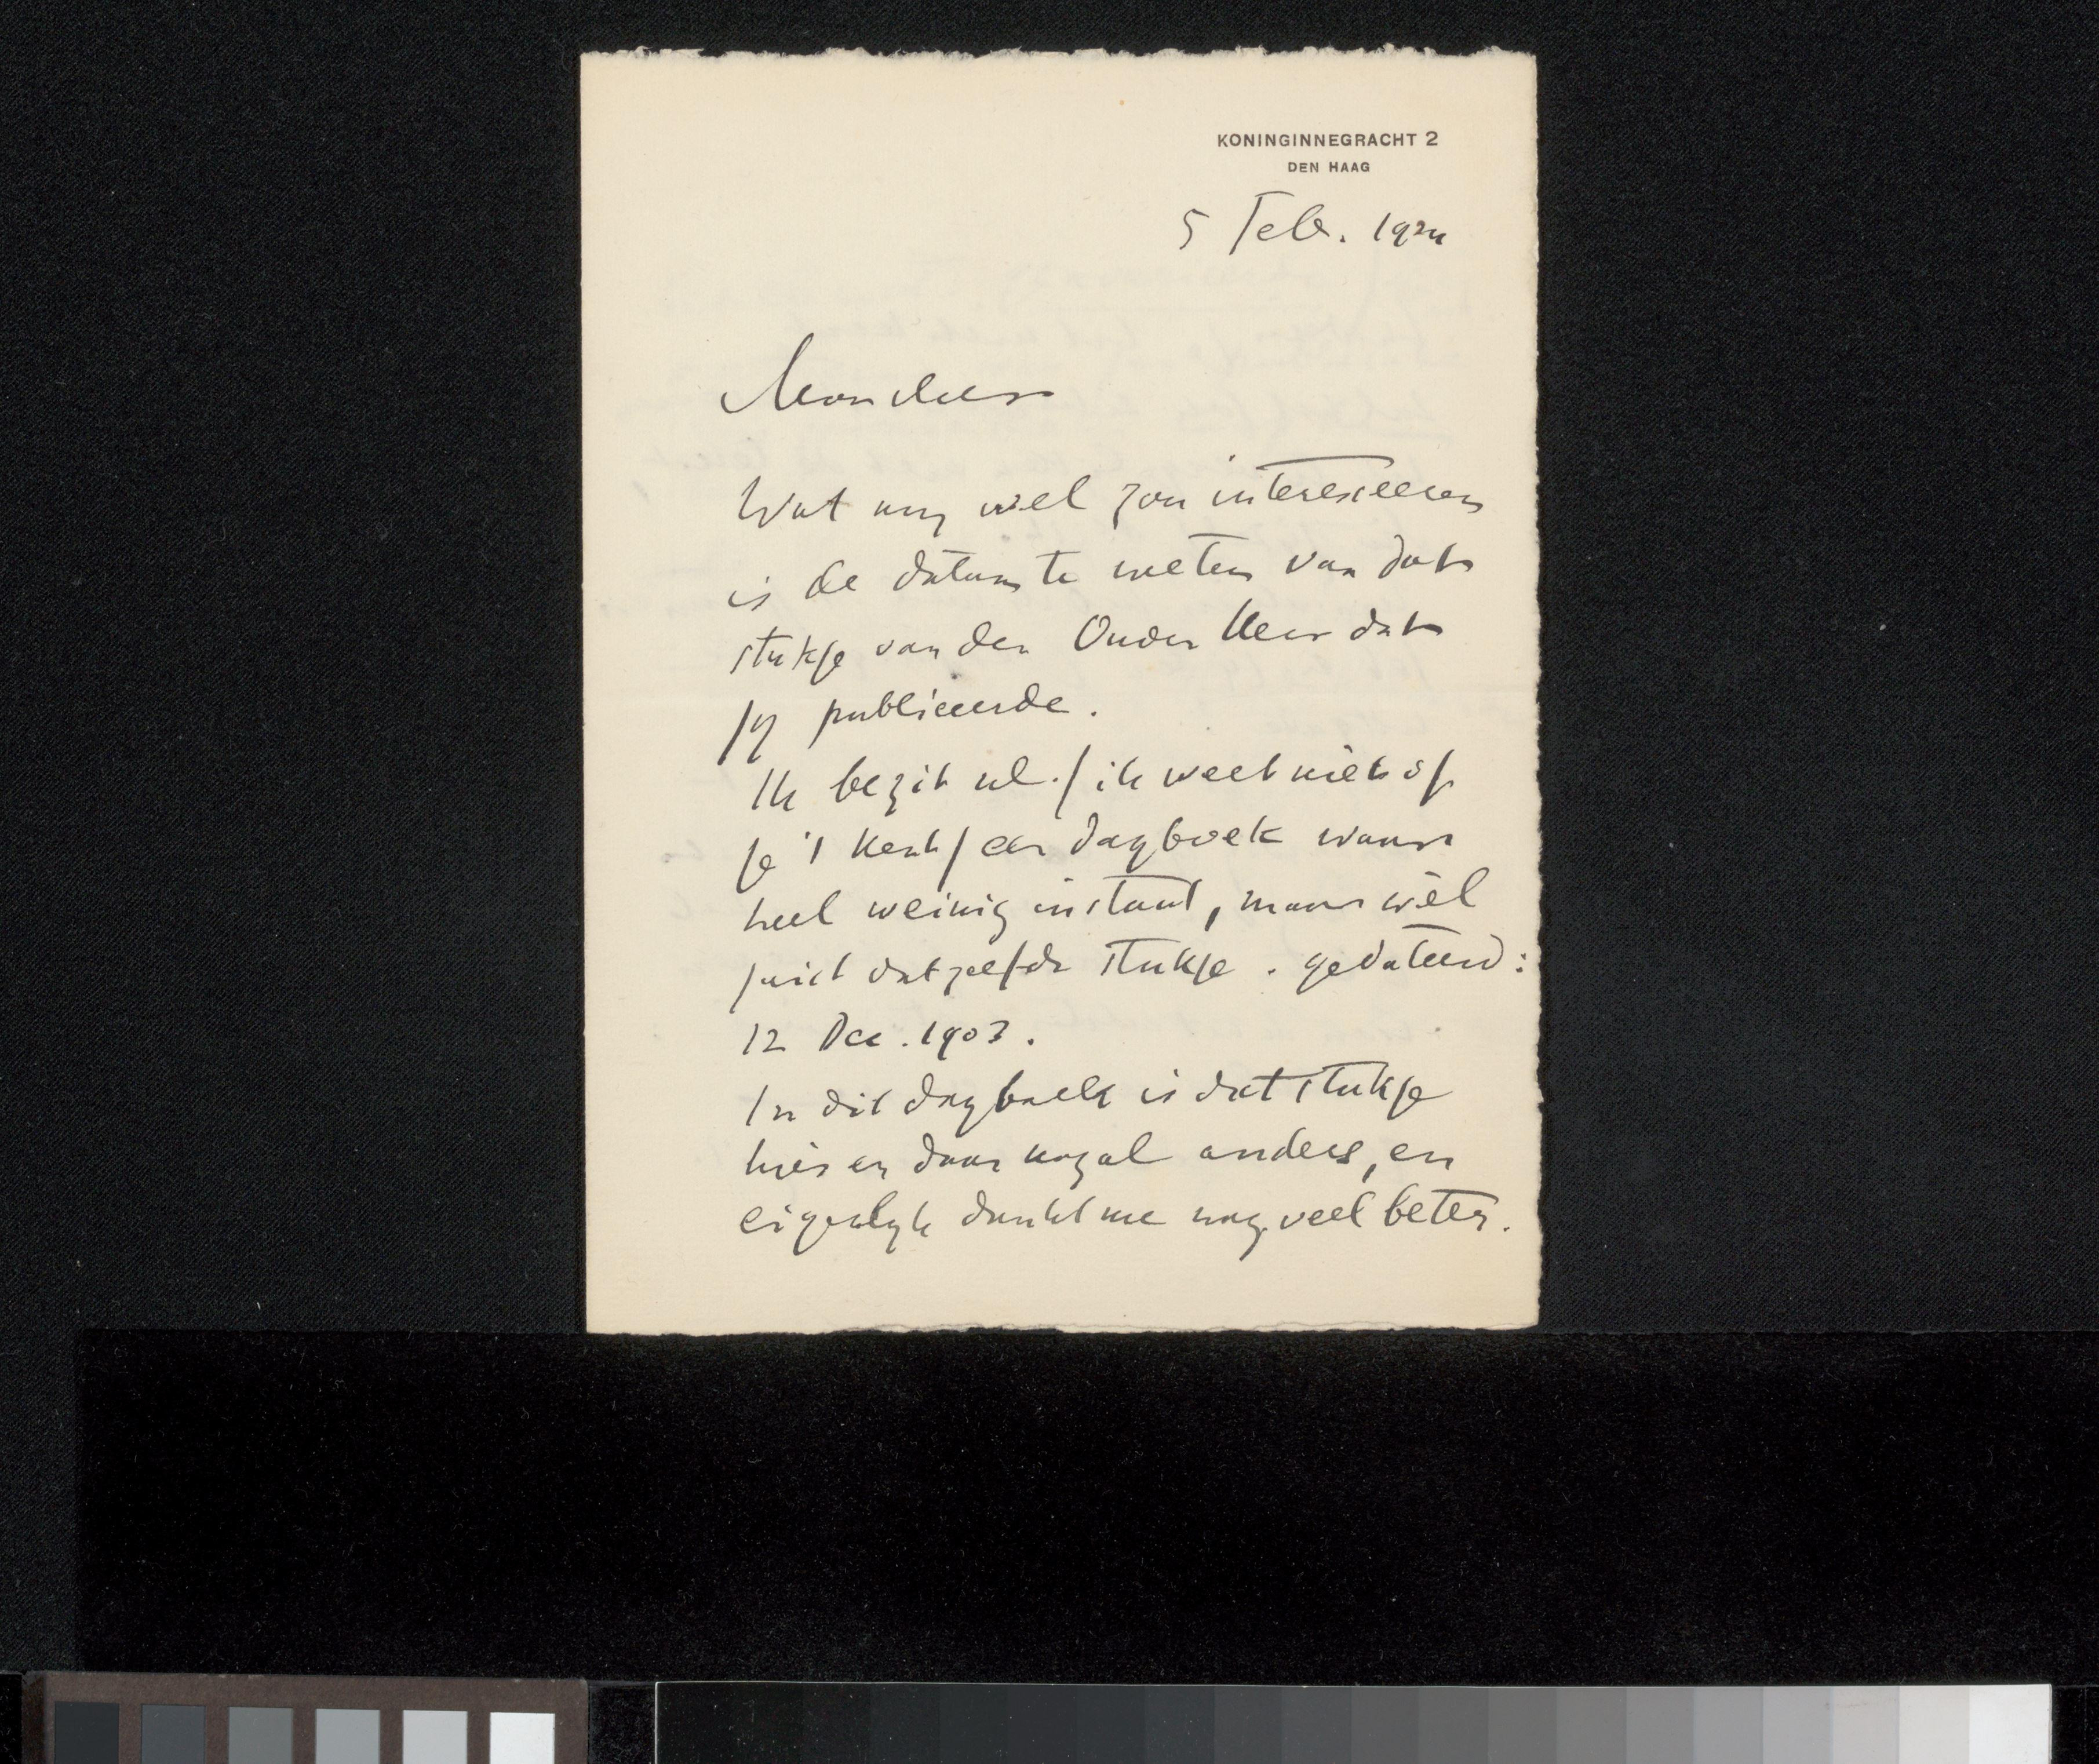 KONINGINNEGRACHT 2
DEN HAAG
5 Feb. 1924
Mon cher
Wat my wel zou interesseeren
is de datum te weten van dat
stukje van den Ouden Heer dat
jy publiceerde.
Ik bezit nl. / ik weet niet of
je 't kent / een dagboek waar
heel weinig in staat, maar wèl
juist datzelfde stukje. gedateerd:
12 Dec. 1903.
In dit dagboek is dat stukje
hier en daar nogal anders, en
eigenlyk dunkt me nog veel beter.